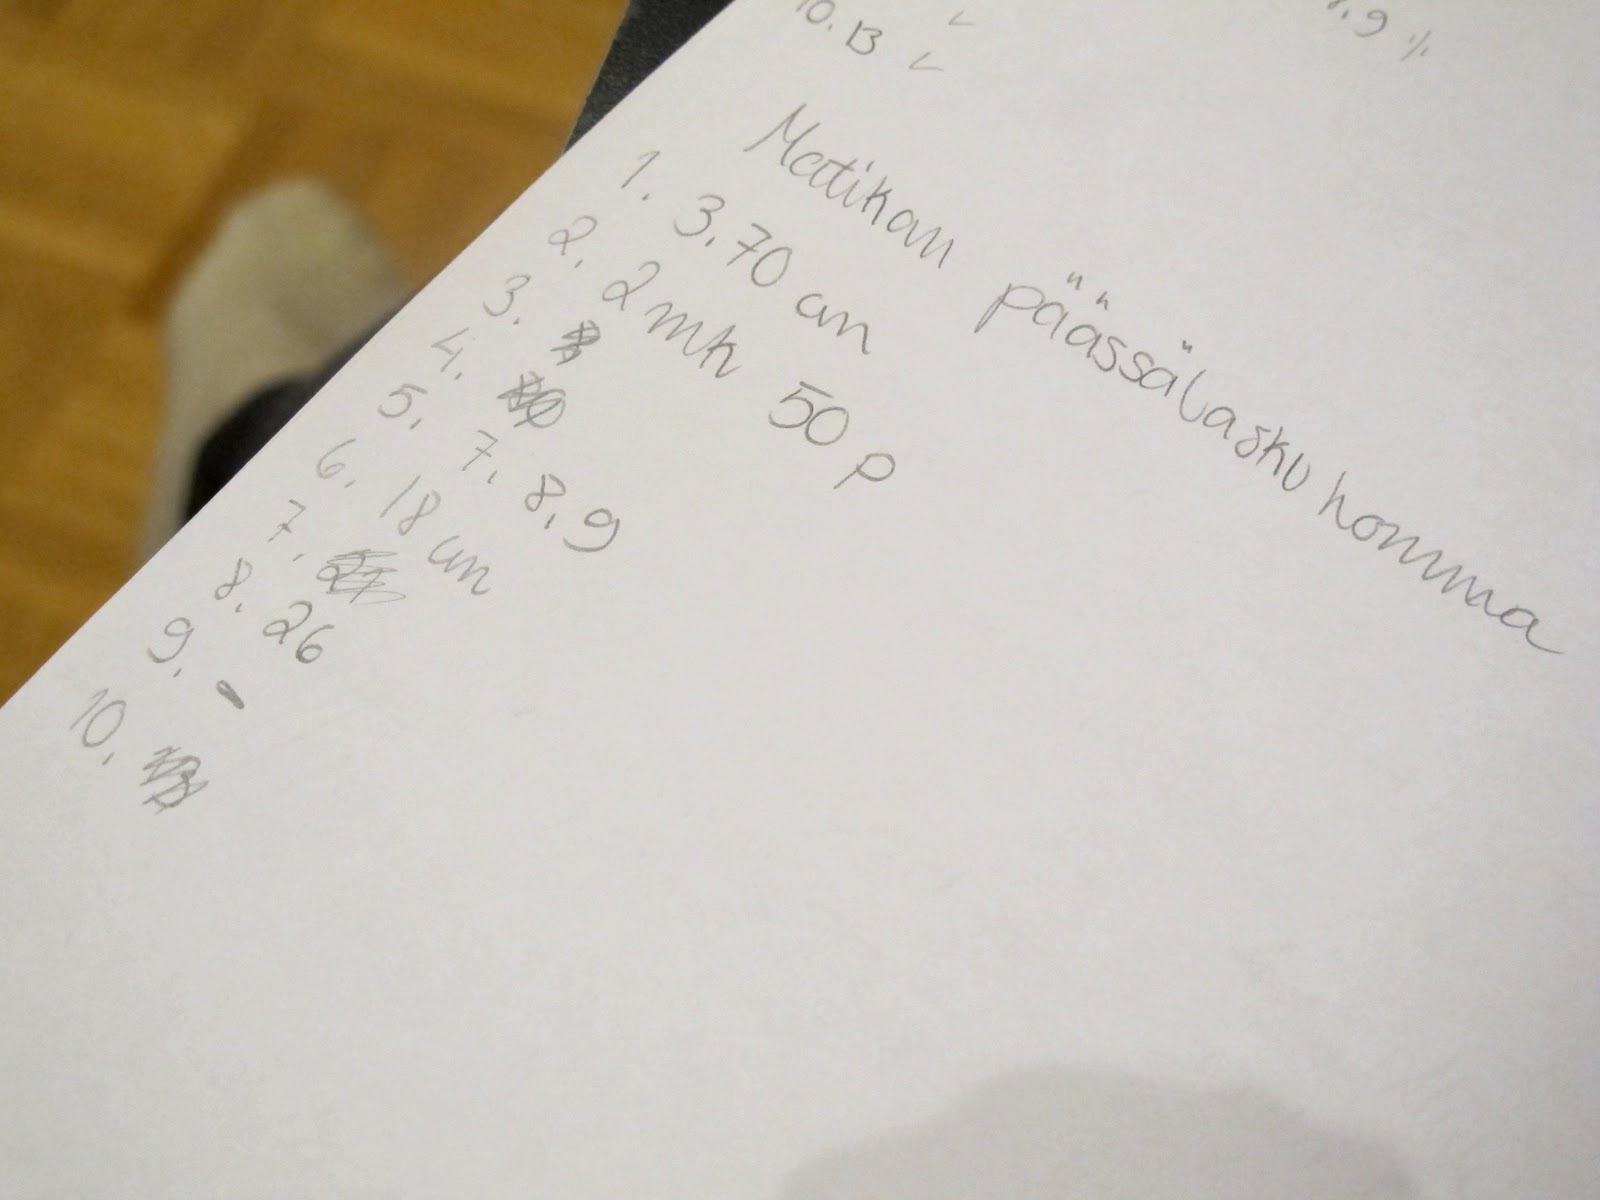 10. 13 ✓
9 %
Matikan päässälasku homma
1. 3,70 cm
2. 2 mk 50 p
3.
4.
5. 7, 8, 9
6. 18 cm
7.
8. 26
9. -
10.